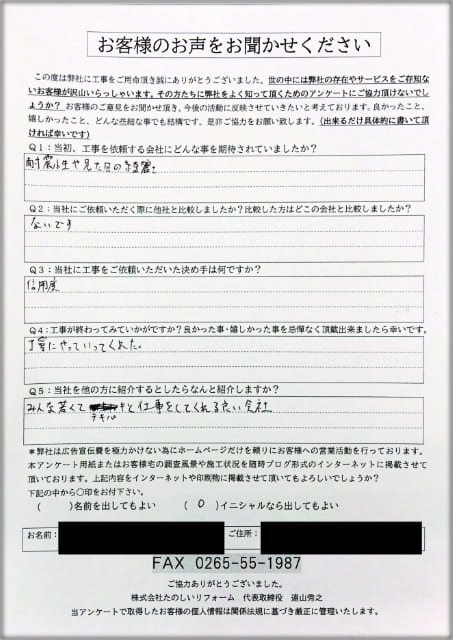 お客様のお声をお聞かせください
この度は弊社に工事をご用命頂き誠にありがとうございました。世の中には弊社の存在やサービスをご存知な
いお客様が沢山いらっしゃいます。その方たちに弊社をよく知って頂くためのアンケートにご協力頂けないでし
ょうか？ お客様のご意見をお聞かせ頂き、今後の活動に反映させていきたいと考えております。良かったこと、
嬉しかったこと、どんな些細な事でも結構です。是非ご協力をお願い致します。（出来るだけ具体的に書いて頂
ければ幸いです）
Q１：当初、工事を依頼する会社にどんな事を期待されていましたか？
耐震性や見た目の綺麗さ
Q２：当社にご依頼いただく際に他社と比較しましたか？比較した方はどこの会社と比較しましたか？
ないです
Q３：当社に工事をご依頼いただいた決め手は何ですか？
信用度
Q４：工事が終わってみていかがですか？良かった事・嬉しかった事を忌憚なく頂戴出来ましたら幸いです。
丁寧にやっていってくれた。
Q５：当社を他の方に紹介するとしたらなんと紹介しますか？
みんな若くて テキパキと仕事をしてくれる良い会社
＊弊社は広告宣伝費を極力かけない為にホームページだけを頼りにお客様への営業活動を行っております。
本アンケート用紙またはお客様宅の調査風景や施工状況を随時ブログ形式のインターネットに掲載させて
頂いております。上記内容をインターネットや印刷物に掲載させて頂いてもよろしいでしょうか？
下記の中から〇印をお付下さい。
（　　）名前を出してもよい　（ 〇 ）イニシャルなら出してもよい
お名前： ご住所：
FAX 0265-55-1987
ご協力ありがとうございました。
株式会社たのしいリフォーム　代表取締役　遠山秀之
当アンケートで取得したお客様の個人情報は関係法規に基づき厳正に管理いたします。